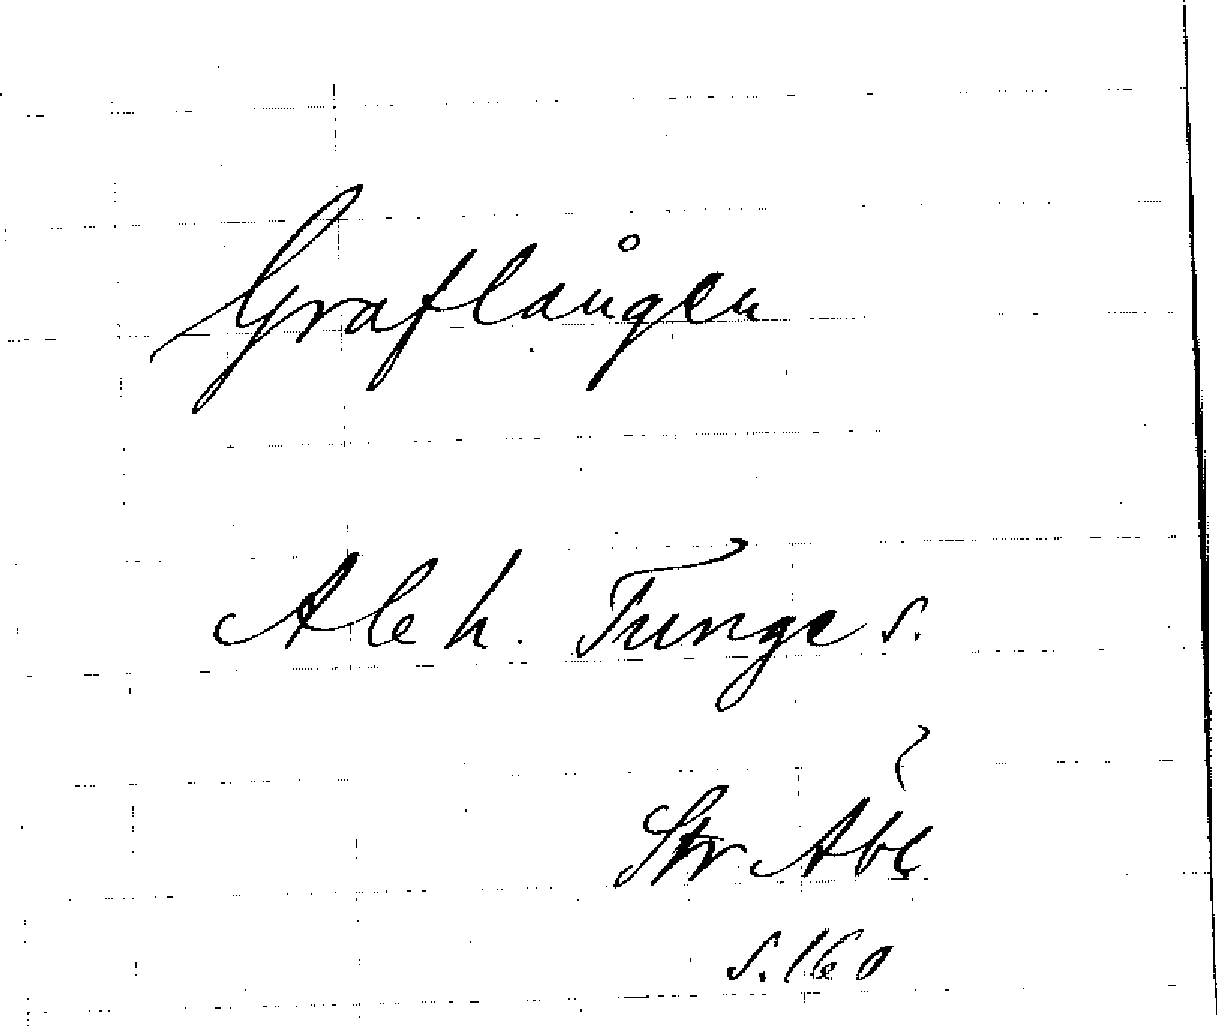 Graflången
Ale h. Tunge s.
Str Abc
s. 160